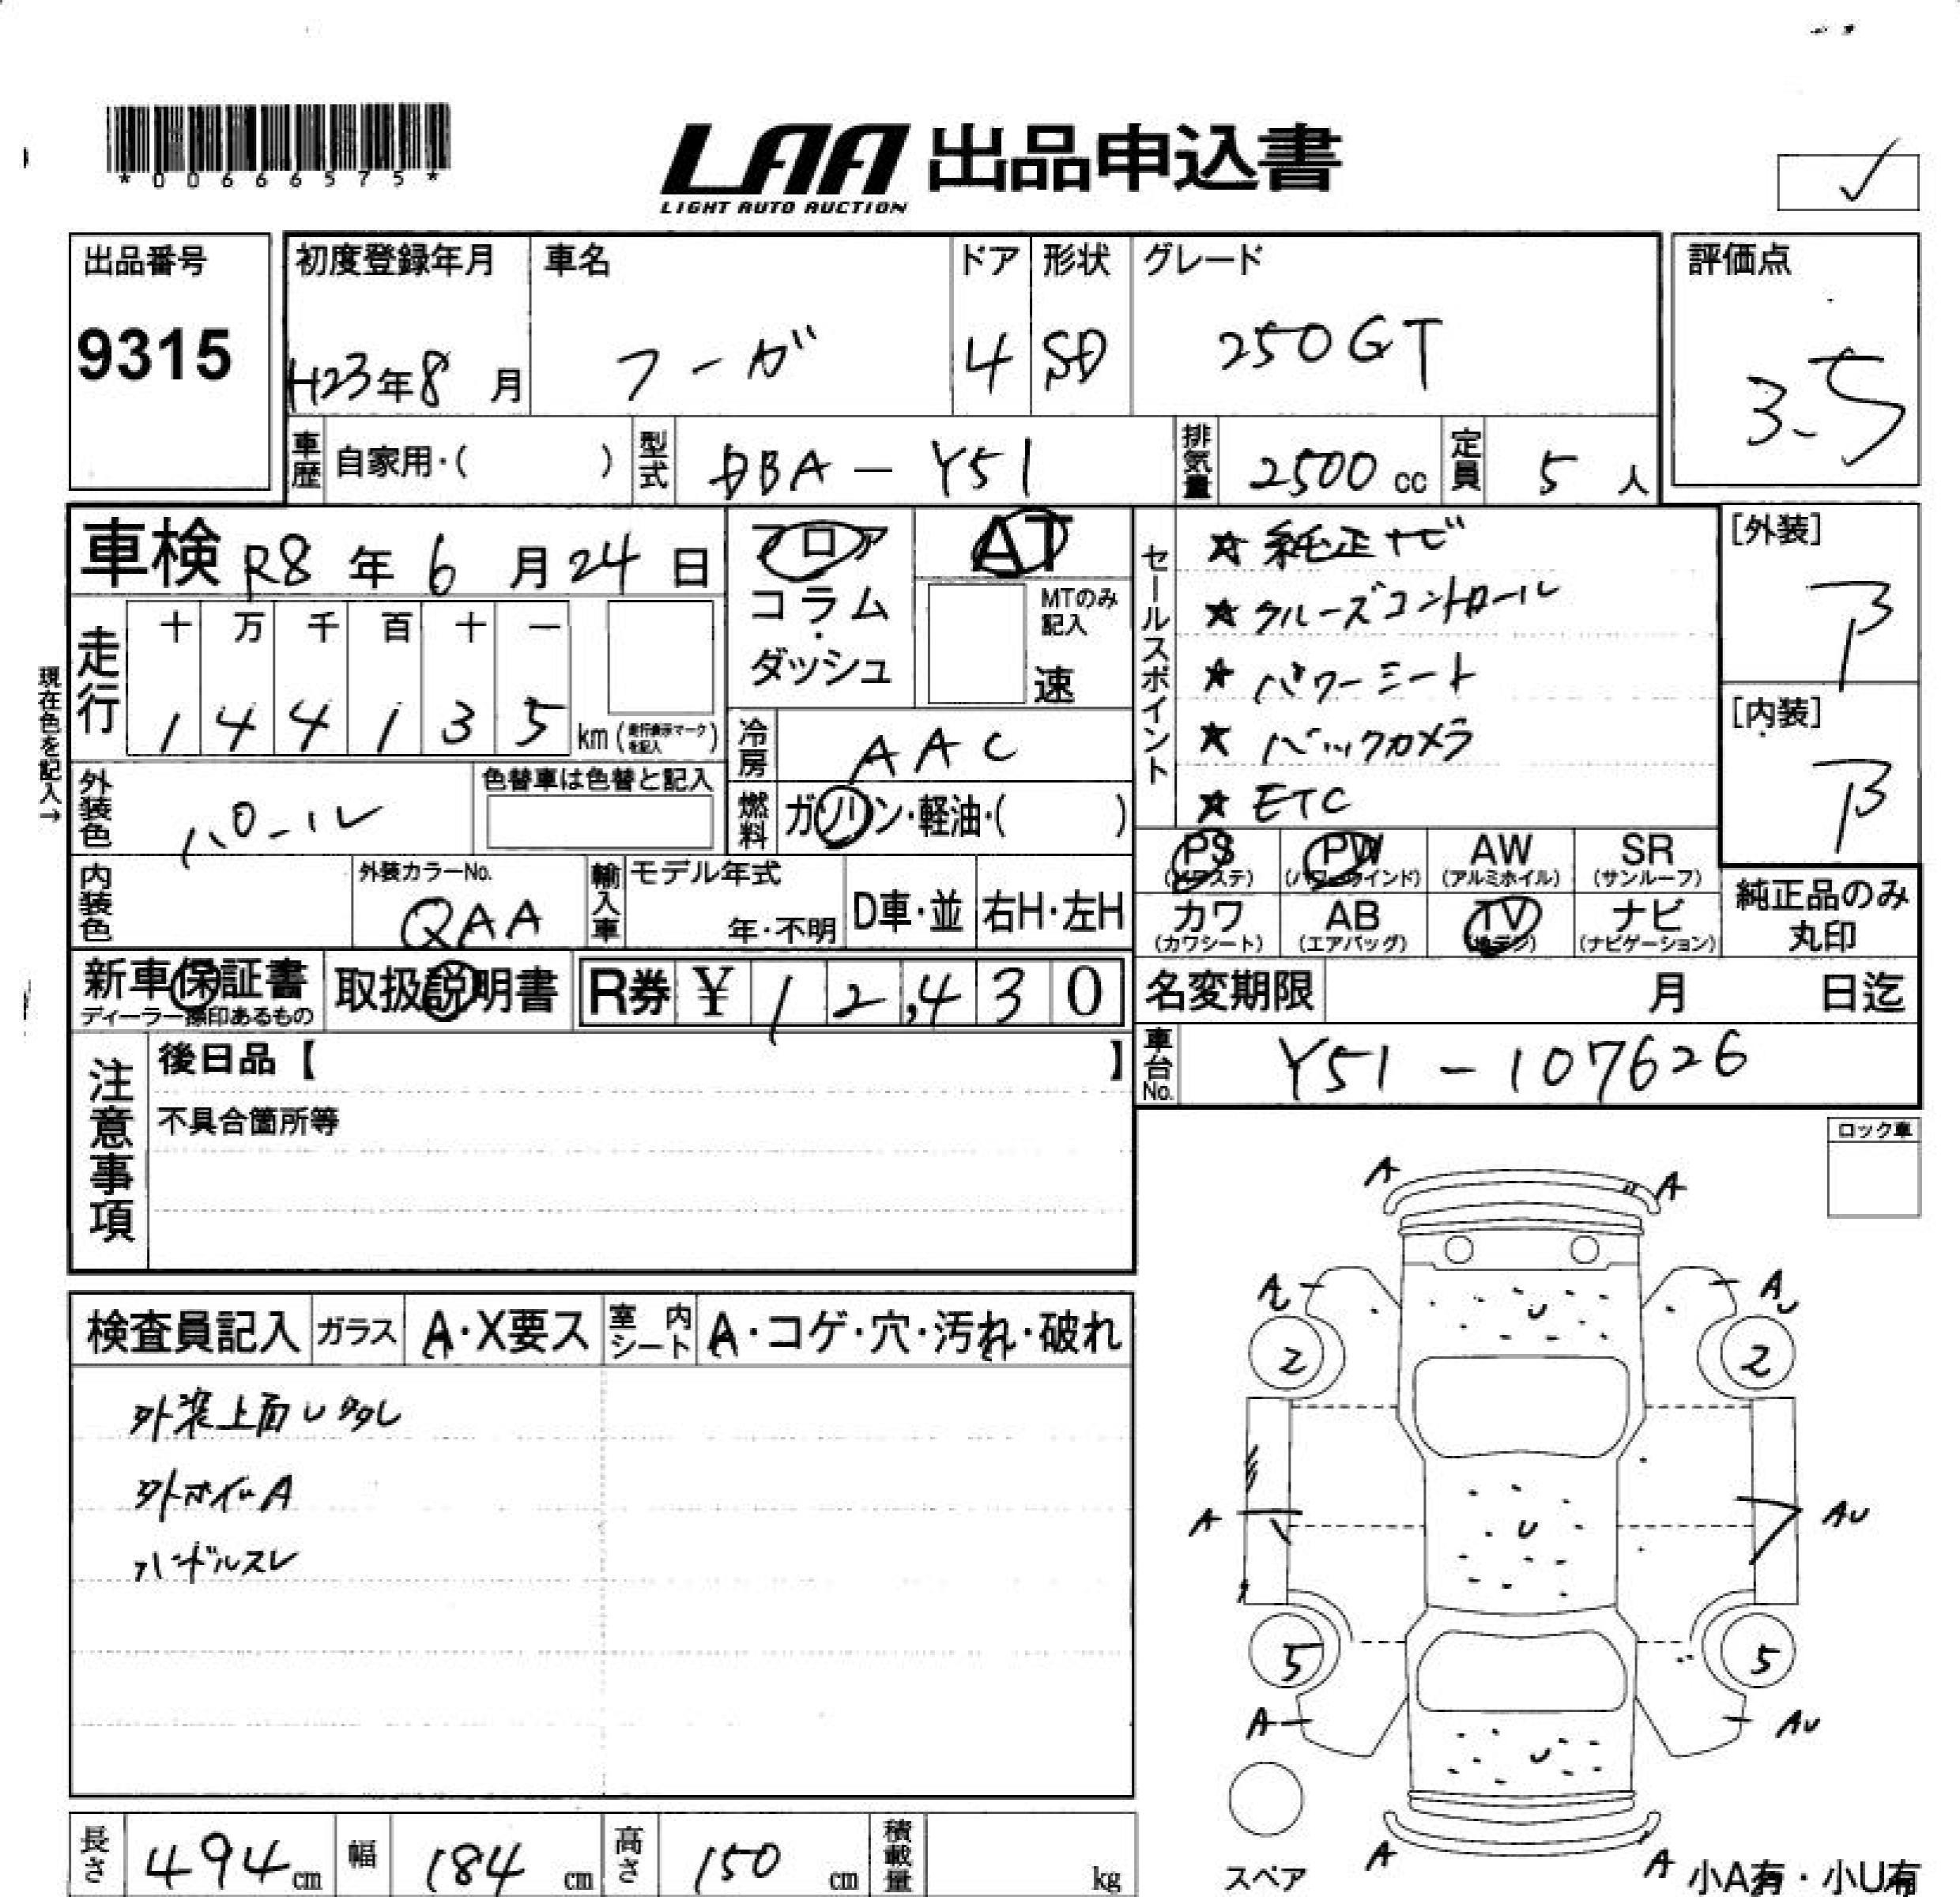 *00666575*
LAA 出品申込書
LIGHT AUTO AUCTION
出品番号
9315
初度登録年月
H23年8月
車名
フーガ
ドア
4
形状
SD
グレード
250GT
評価点
3.5
車歴
自家用・( )
型式
DBA-Y51
排気量
2500 cc
定員
5人
車検 R8年6月24日
フロア
コラム
・
ダッシュ
AT
MTのみ
記入
速
セールスポイント
★ 純正ナビ
★ クルーズコントロール
★ パワーシート
★ バックカメラ
★ ETC
[外装]
B
[内装]
B
現在色を記入→
走行
十 万 千 百 十 一
1 4 4 1 3 5 km (走行表示マークを記入)
冷房
AAC
外装色
パール
色替車は色替と記入
燃料
ガソリン・軽油・( )
PS
(パワステ)
PW
(パワーウインド)
AW
(アルミホイル)
SR
(サンルーフ)
カワ
(カワシート)
AB
(エアバッグ)
TV
(地デジ)
ナビ
(ナビゲーション)
純正品のみ
丸印
内装色
外装カラーNo.
QAA
輸入車
モデル年式
年・不明
D車・並
右H・左H
新車保証書
ディーラー捺印あるもの
取扱説明書
R券 ¥ 12,430
名変期限 月 日迄
車台No.
Y51-107626
注意事項
後日品【 】
不具合箇所等
ロック車
検査員記入
ガラス
A・X要ス
室内シート
A・コゲ・穴・汚れ・破れ
外装上面U多多し
外ホイルA
ハンドルスレ
A A
A AU
2 2
U
A U AU
5 5
A AU
U
A A
スペア
小A有・小U有
長さ
494 cm
幅
184 cm
高さ
150 cm
積載量
kg